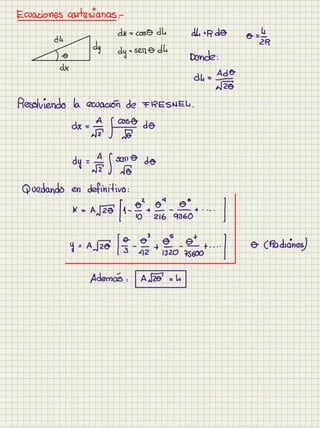 Ecuaciones cartesianas.-
dL
dy
θ
dx
dx = cosθ dL
dy = senθ dL
dL = R dθ
θ = L / 2R
Donde:
dL = A dθ / √2θ
Resolviendo la ecuación de FRESNEL.
dx = A/√2 ∫ cosθ/√θ dθ
dy = A/√2 ∫ senθ/√θ dθ
Quedando en definitivo:
X = A√2θ [1 - θ²/10 + θ⁴/216 - θ⁶/9360 + ....]
y = A√2θ [θ/3 - θ³/42 + θ⁵/1320 - θ⁷/75600 + ....]
θ (Radianes)
Además: A√2θ = L